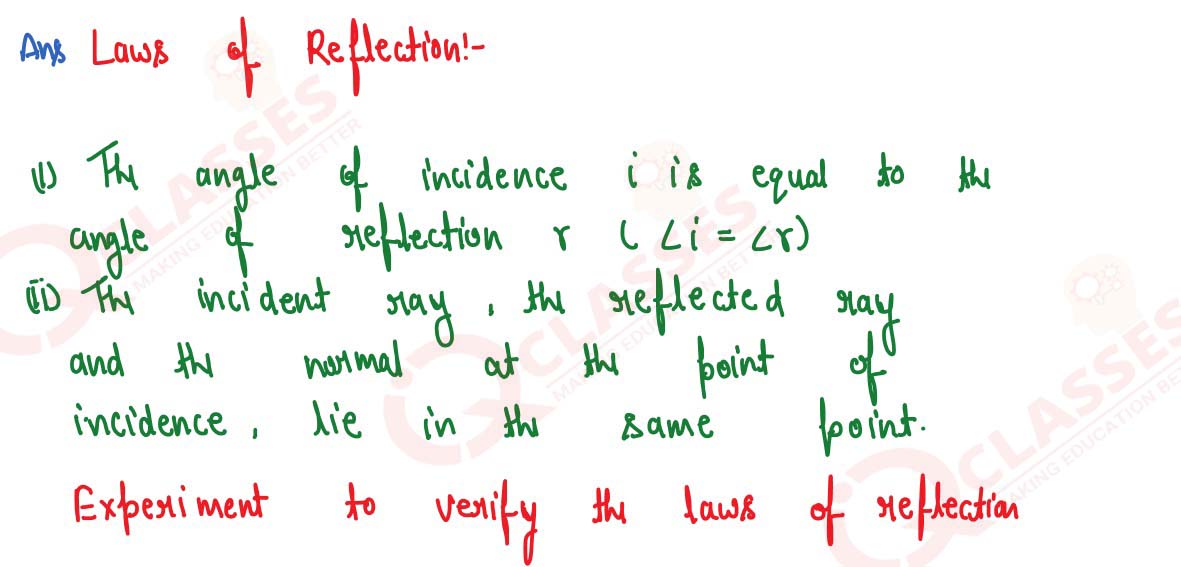 Ans Laws of Reflection:-
(i) The angle of incidence i is equal to the
angle of reflection r ( ∠i = ∠r)
(ii) The incident ray, the reflected ray
and the normal at the point of
incidence, lie in the same point.
Experiment to verify the laws of reflection
CLASSES
MAKING EDUCATION BETTER
CLASSES
MAKING EDUCATION BETTER
CLASSES
MAKING EDUCATION BE